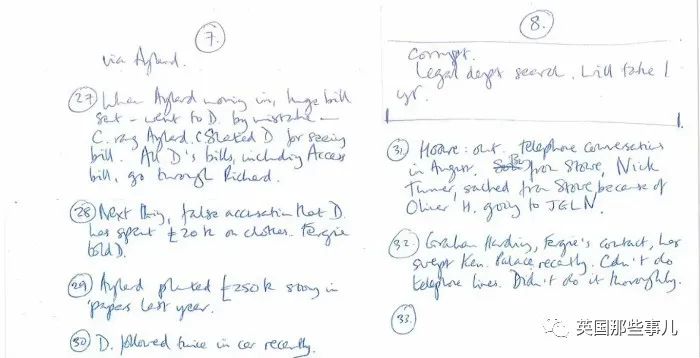 7.
via Aylard.
(27) When Aylard moving in, huge bill
sent - went to D. by mistake -
C. rang Aylard. C slated D for seeing
bill. All D's bills, including Access
bill, go through Richard.
(28) Next thing, false accusation that D.
has spent £20k on clothes. Fergie
told D.
(29) Aylard planted £250k story in
'papers last year.
(30) D. followed twice in car recently.
8.
corrupt.
Legal dept search. Will take 1
yr.
31. Hoare: out. telephone conversations
in August. from Stowe, Nick
Turner, sacked from Stowe because of
Oliver H. going to
32. Graham Harding, Fergie's contact, has
swept Ken. Palace recently. Cdn't do
telephone lines. Didn't do it thoroughly.
33.
英国那些事儿